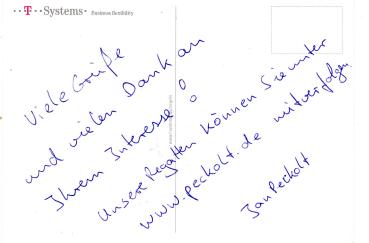 ··T··Systems· Business flexibility
Viele Grüße
und vielen Dank an
Ihrem Interesse!
Unsere Regatten können Sie unter
www.peckolt.de mitverfolgen.
Jan Peckolt